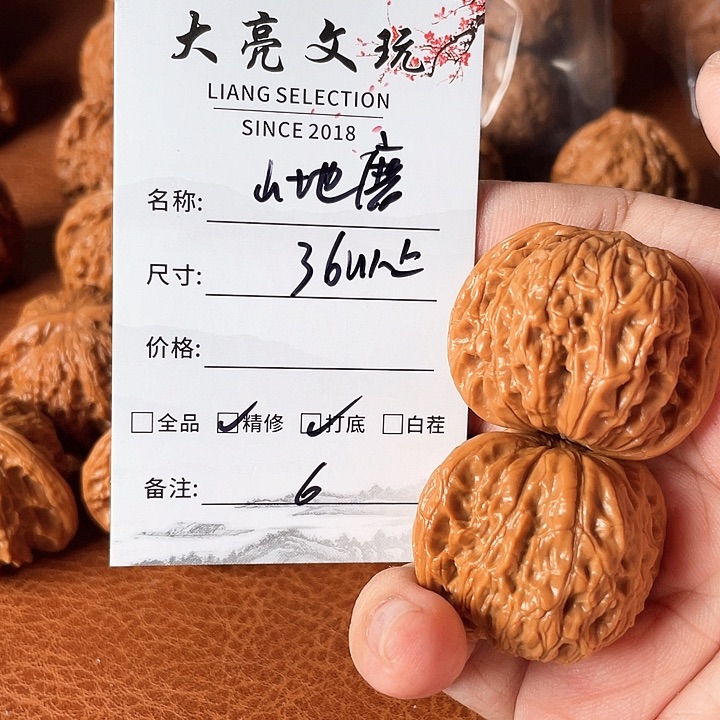 大亮文玩
LIANG SELECTION
SINCE 2018
名称: 山地磨
尺寸: 36以上
价格:
□全品 ☑精修 ☑打底 □白茬
备注: 6